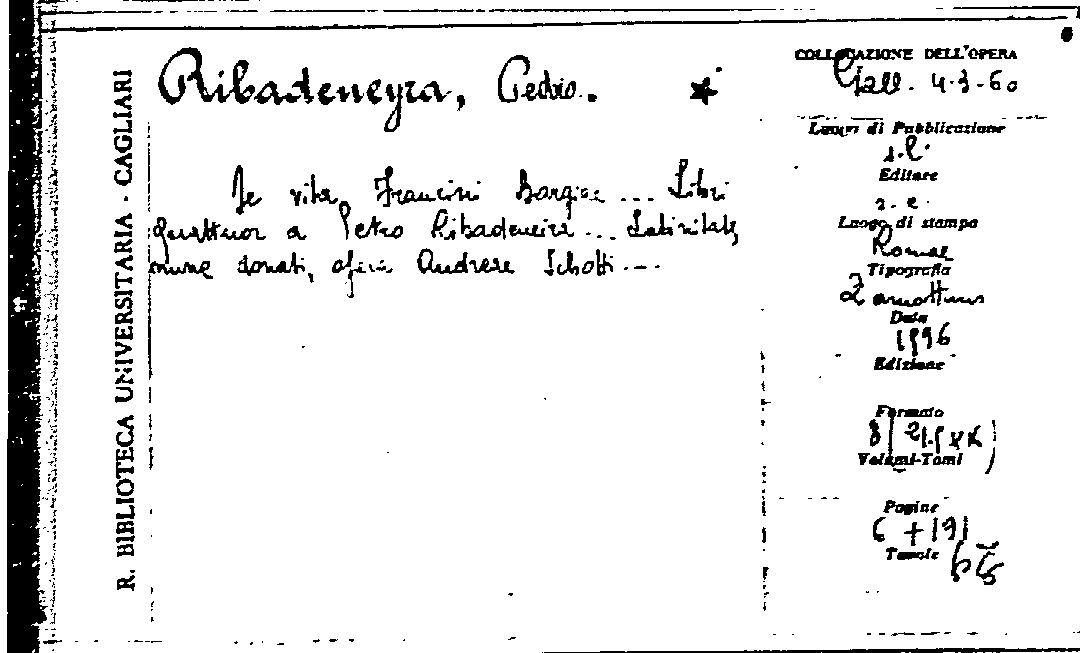 R. BIBLIOTECA UNIVERSITARIA - CAGLIARI
Ribadeneyra, Pedro. *
De vita Francisci Borgiae ... Libri
quattuor a Petro Ribadeneira ... Latinitate
nunc donati, opera Andreae Schotti ...
COLLOCAZIONE DELL'OPERA
Gall. 4-3-60
Luogo di Pubblicazione
s.l.
Editore
s. e.
Luogo di stampa
Romae
Tipografia
Zannettus
Data
1596
Edizione
Formato
8
Volumi-Tomi
Pagine
6 + 191
Tavole